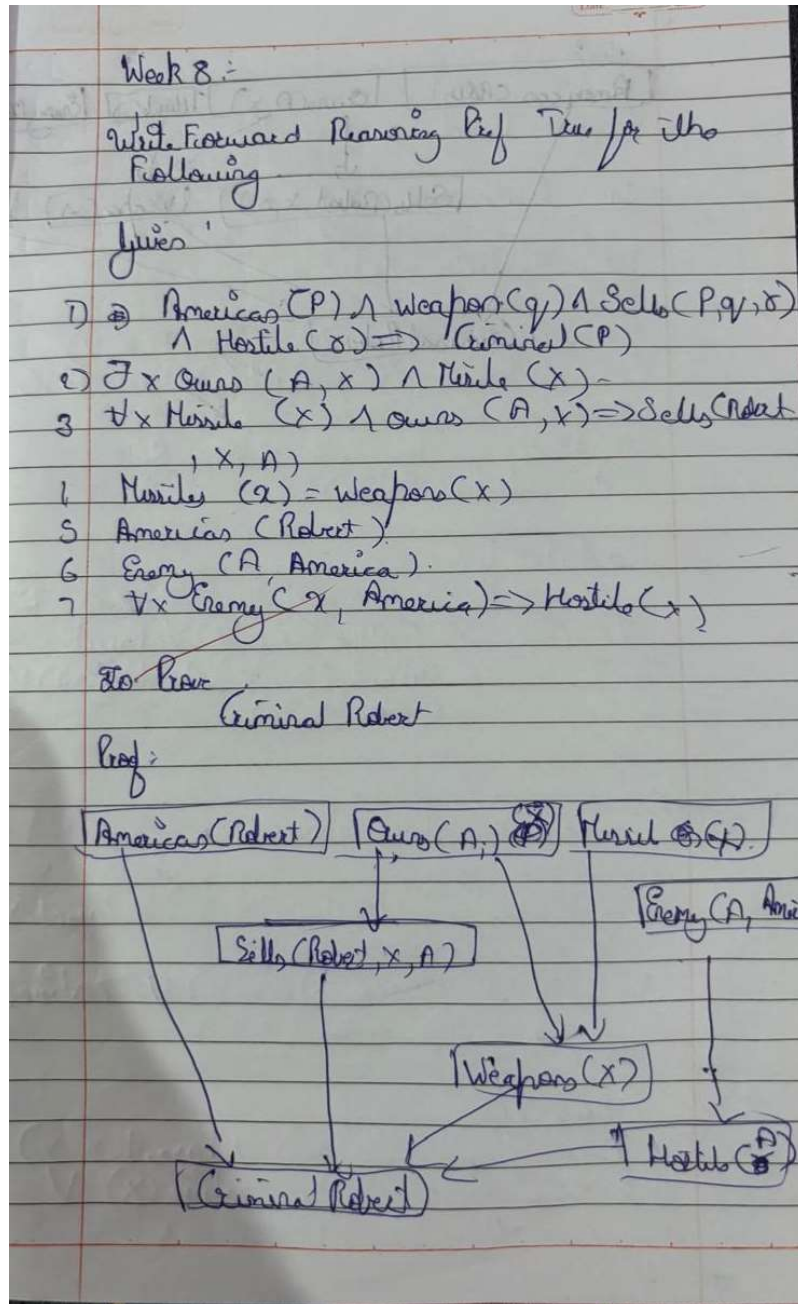 Week 8:-
Write Forward Reasoning Prof Tree for the
Following.
Given
1) American (P) ∧ Weapon (q) ∧ Sells (P, q, r)
∧ Hostile (r) => Criminal (P)
2) ∃x Owns (A, x) ∧ Missile (x) -
3 ∀x Missile (x) ∧ owns (A, x) => Sells (Robert
, x, A)
Missiles (x) = Weapons (x)
5 American (Robert)
6 Enemy (A, America).
7 ∀x Enemy (x, America) => Hostile (x)
To Prove
Criminal Robert
Proof:
American (Robert) Owns (A,) Missil
Enemy (A,
Sells (Robert, x, A)
Weapons (x)
Hostile (A)
Criminal Robert